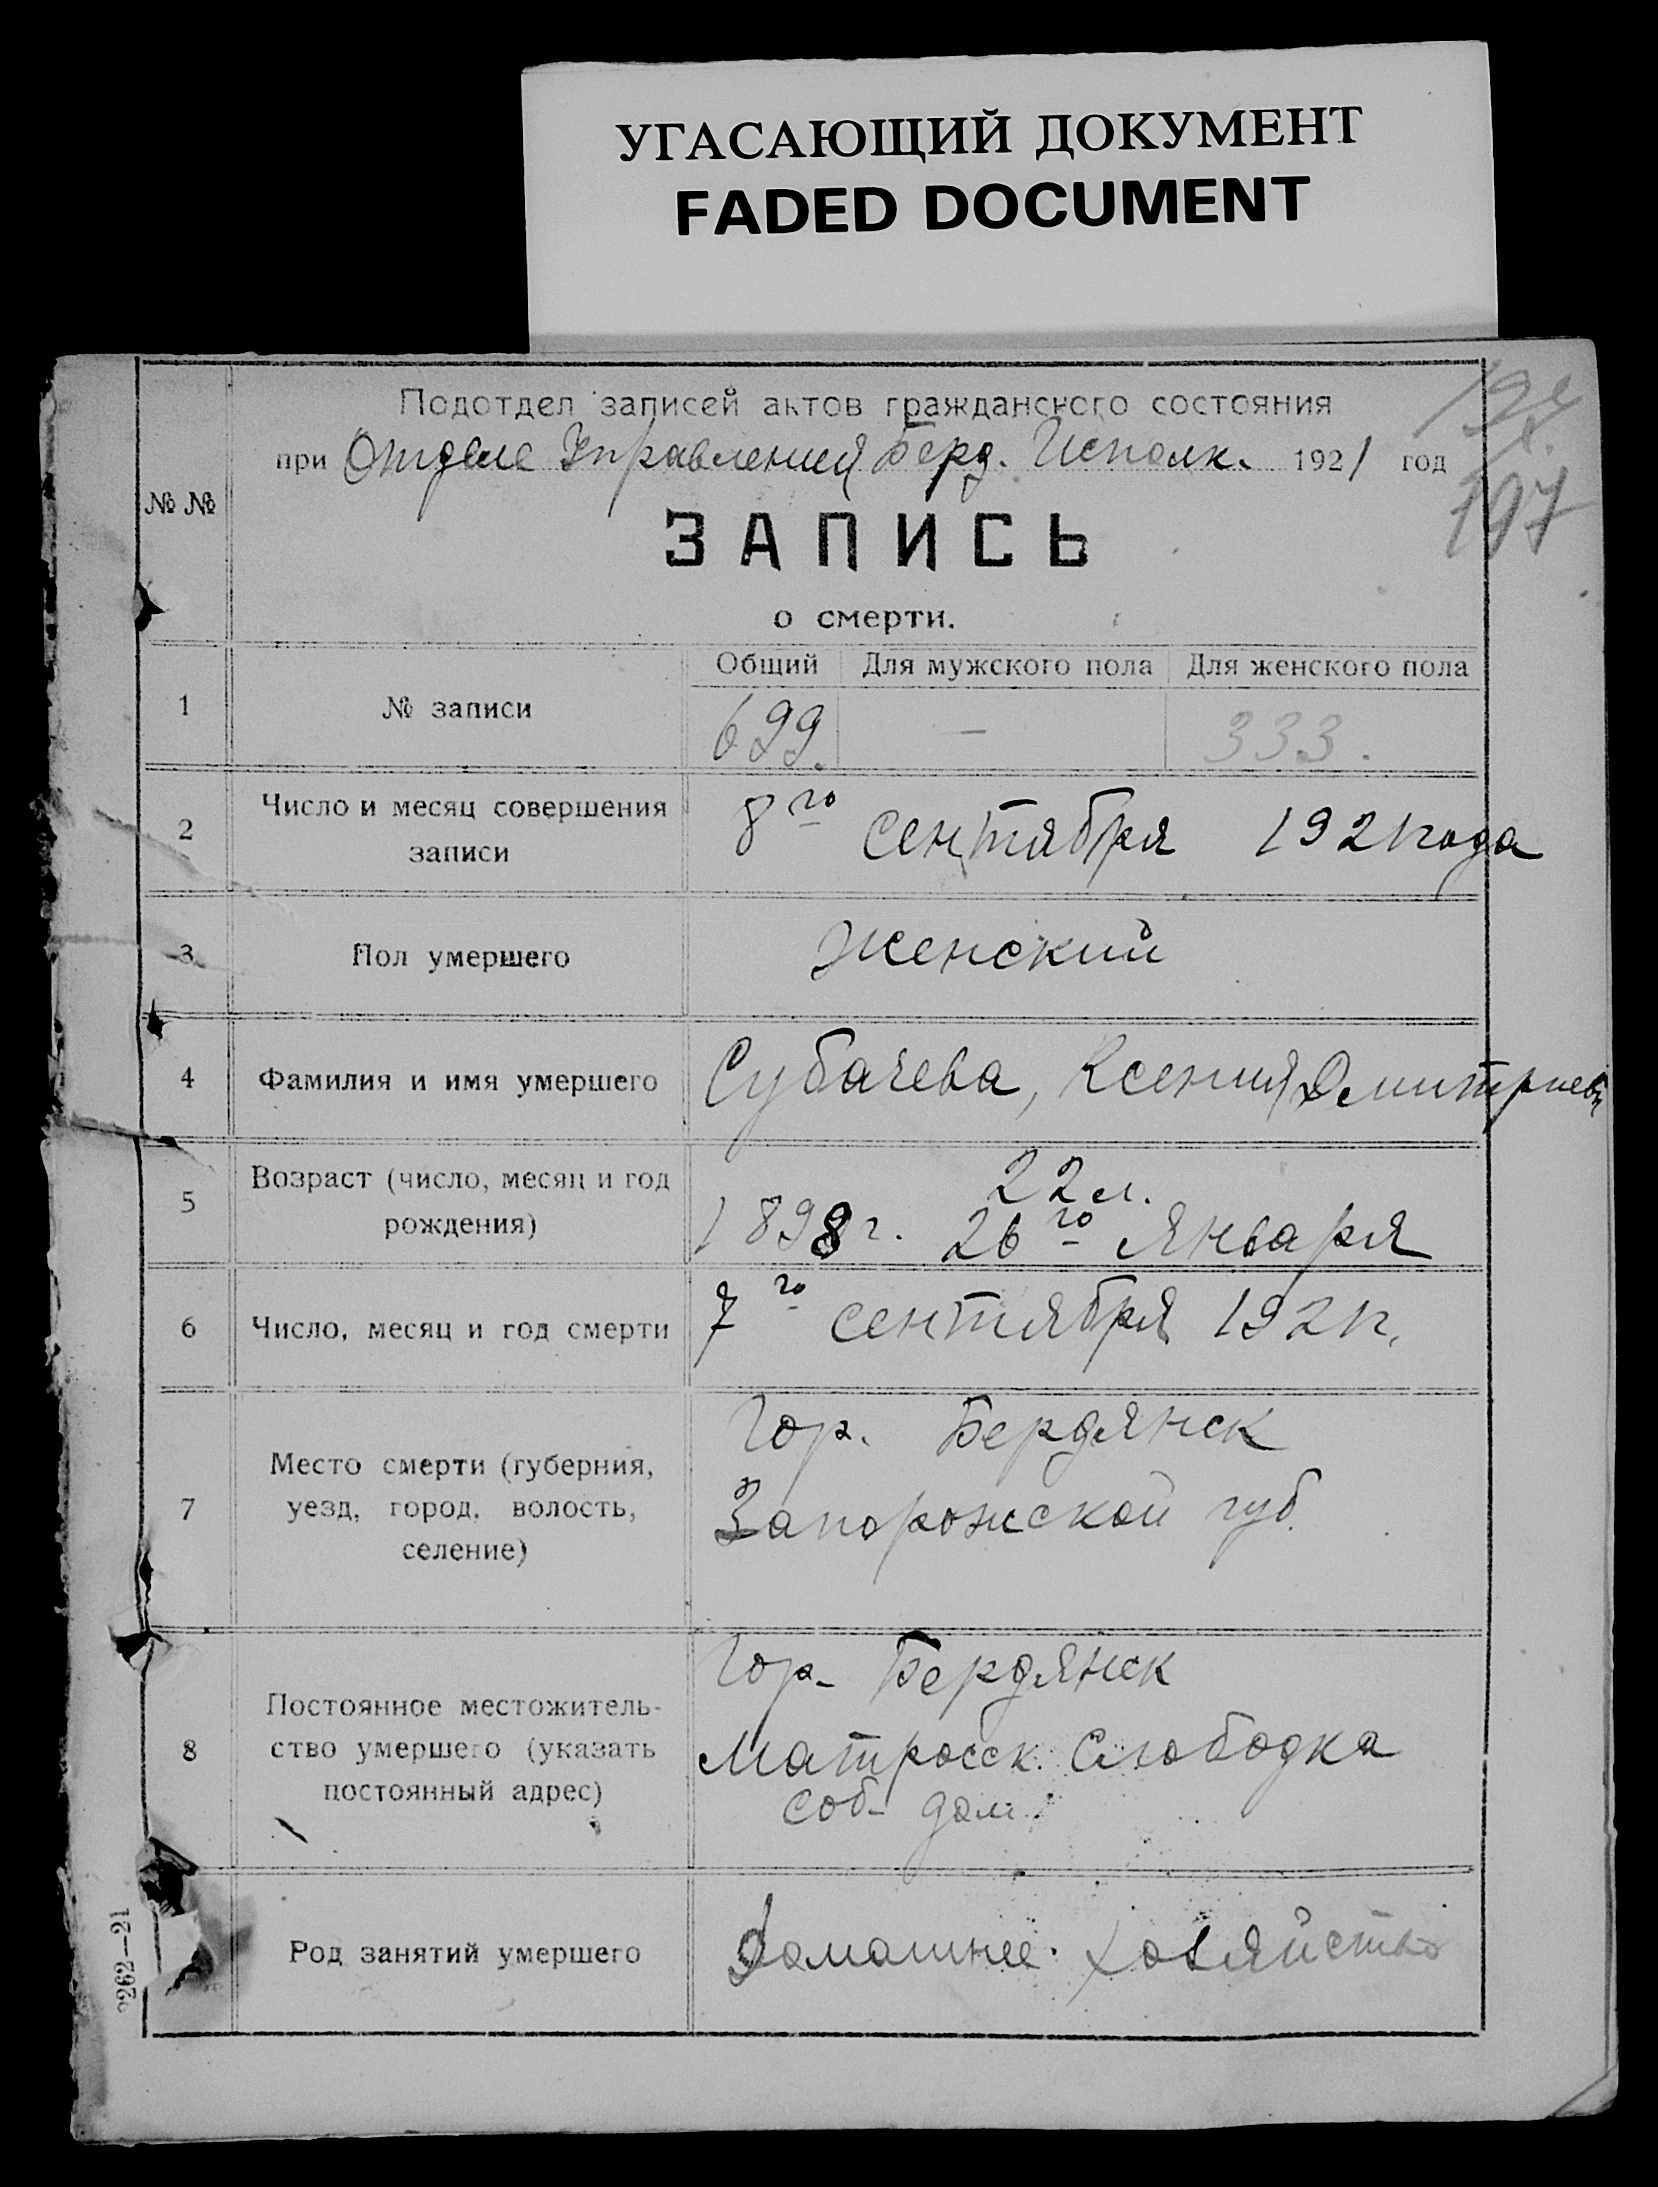 УГАСАЮЩИЙ ДОКУМЕНТ
FADED DOCUMENT
Подотдел записей актов гражданского состояния
при Отделе Управления Берд. Исполк. 1921 год
197
№ №
ЗАПИСЬ
о смерти.
Общий Для мужского пола Для женского пола
1 № записи 699. — 333.
2 Число и месяц совершения
записи
8го сентября 1921 года
3 Пол умершего Женский
4 Фамилия и имя умершего Субачева, Ксения Дмитриев
5 Возраст (число, месяц и год
рождения)
22 л.
1898 г. 26го Января
6 Число, месяц и год смерти 7го сентября 1921 г.
7 Место смерти (губерния,
уезд, город, волость,
селение)
Гор. Бердянск
Запорожской губ.
8 Постоянное местожитель-
ство умершего (указать
постоянный адрес)
Гор. Бердянск
Матросск. Слободка
соб. дом.
Род занятий умершего Домашнее хозяйство
9262—21